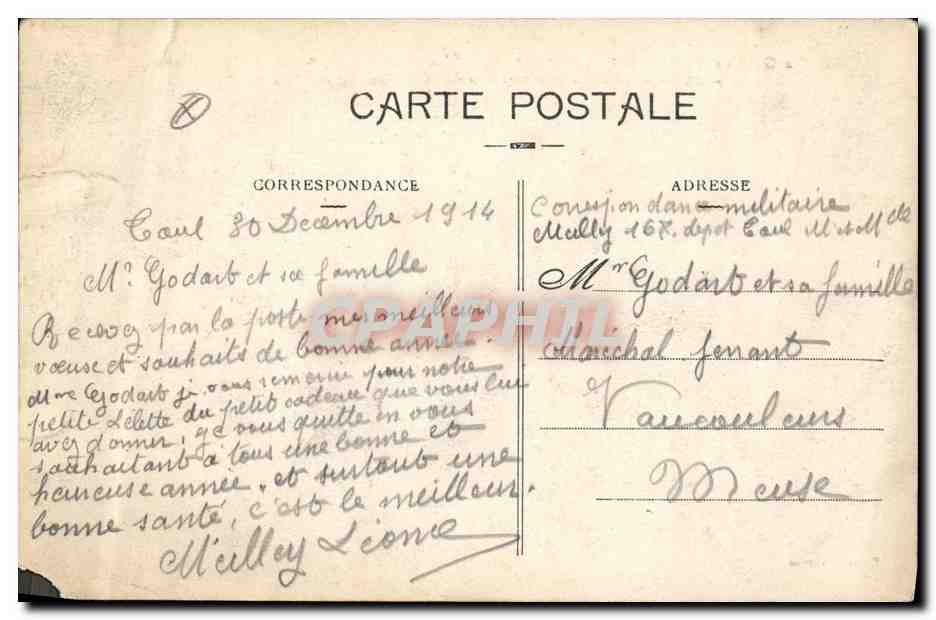 CARTE POSTALE
CORRESPONDANCE
Toul 30 Decembre 1914
Mr. Godart et sa famille
Recevez par la poste mes meilleurs
vœuse et souhaits de bonne année.
Mme Godart je vous remercie pour notre
petite Lélette du petit cadeau que vous lui
avez donner, je vous quitte en vous
souhaitant a tous une bonne et
heureuse année. et surtout une
bonne santé, c'est le meilleur.
Mulley Léonie
ADRESSE
Correspondance militaire
Mulley 167. depot Toul Mt et Mlle
Mr Godart et sa famille
Maréchal ferrant
Vaucouleurs
Meuse
CPAPHIL